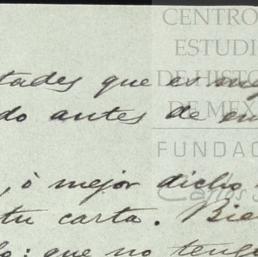 CENTRO
ESTUDI
DE HISTO
DE MEX
FUNDAC
tades que es
do antes de
, ó mejor dicho
tu carta. Bie
lo: que no tengo